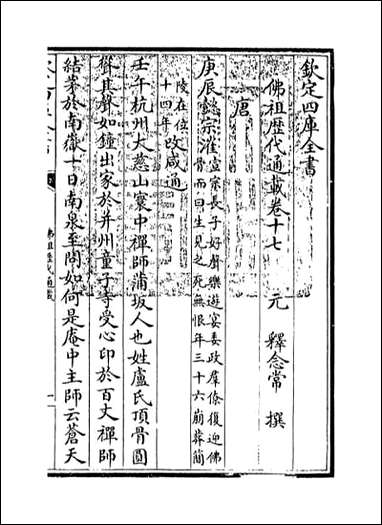 欽定四庫全書
佛祖歷代通載卷十七　元　釋念常　撰
唐
庚辰懿宗漼宣宗長子好聲樂遊宴委政羣僚復迎佛
骨而曰生見之死無恨年三十六崩葬簡
陵在位
十四年改咸通
壬午杭州大慈山寰中禪師蒲坂人也姓盧氏頂骨圓
聳其聲如鐘出家於并州童子寺受心印於百丈禪師
結茅於南嶽一日南泉至問如何是庵中主師云蒼天
佛祖歷代通載
一